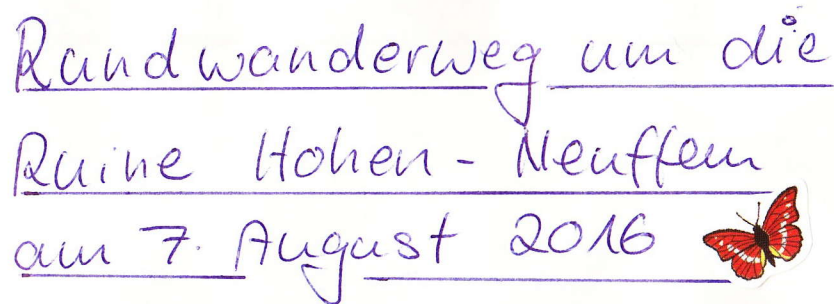 Rundwanderweg um die
Ruine Hohen - Neuffen
am 7. August 2016